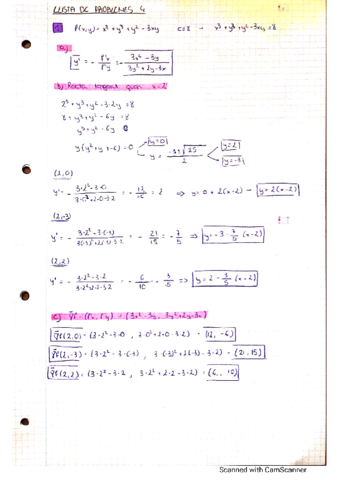 LLISTA DE PROBLEMES 4
1. P(x,y) = x³ + y³ + y² - 3xy c=8 → x³+y³+y²-3xy = 8
a)
y' = - P'x / P'y = - 3x² - 3y / 3y² + 2y - 3x
b) Recta tangent quan x=2
2³ + y³ + y² - 3·2y = 8
8 + y³ + y² - 6y = 8
y³ + y² - 6y = 0
y(y² + y - 6) = 0 y=0
y = -1 ± √25 / 2 y=2
y=-3
(2,0)
y' = - 3·2² - 3·0 / 3·0² + 2·0 - 3·2 = - 12 / -6 = 2 ⇒ y = 0 + 2(x-2) → y = 2(x-2)
(2,-3)
y' = - 3·2² - 3·(-3) / 3(-3)² + 2(-3) - 3·2 = - 21 / 15 = - 7 / 5 ⇒ y = -3 - 7/5 (x-2)
(2,2)
y' = - 3·2² - 3·2 / 3·2² + 2·2 - 3·2 = - 6 / 10 = - 3 / 5 ⇒ y = 2 - 3/5 (x-2)
= (3x² - 3y, 3y² + 2y - 3x)
(2,0) = (3·2² - 3·0, 3·0² + 2·0 - 3·2) = (12, -6)
(2,-3) = (3·2² - 3·(-3), 3·(-3)² + 2(-3) - 3·2) = (21, 15)
(2,2) = (3·2² - 3·2, 3·2² + 2·2 - 3·2) = (6, 10)
Scanned with CamScanner